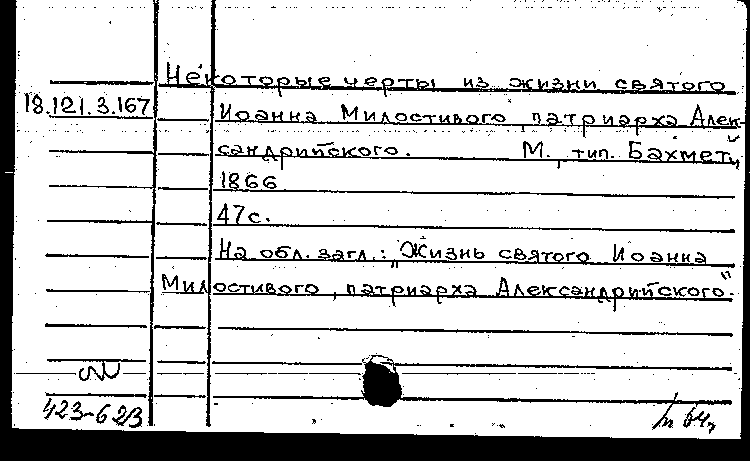 Некоторые черты из жизни святого
18.121.3.167 Иоанна Милостивого, патриарха Алек-
сандрийского. М., тип. Бахмет 
1866
47с.
На обл. загл.: „Жизнь святого Иоанна
Милостивого, патриарха Александрийского."
423-623